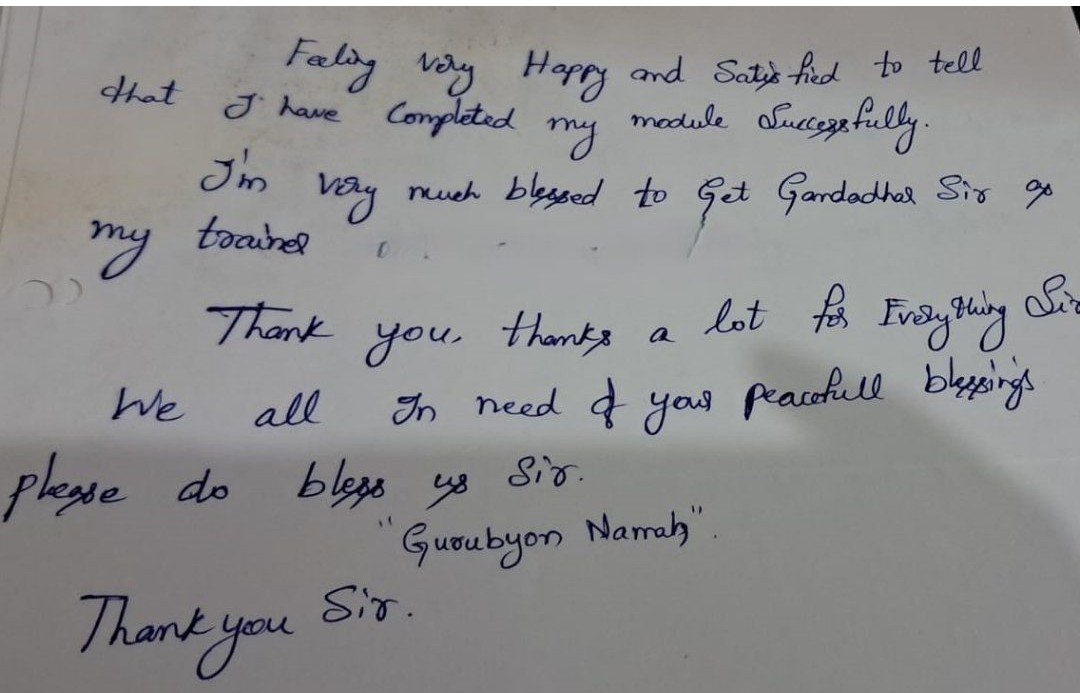 Feeling very Happy and Satisfied to tell
that I have Completed my module Successfully.
I'm very much blessed to Get Gandadhar Sir as
my trainer
Thank you, thanks a lot for Everything Sir
We all In need of your peacefull blessings
please do bless us Sir.
"Gurubyon Namah".
Thank you Sir.